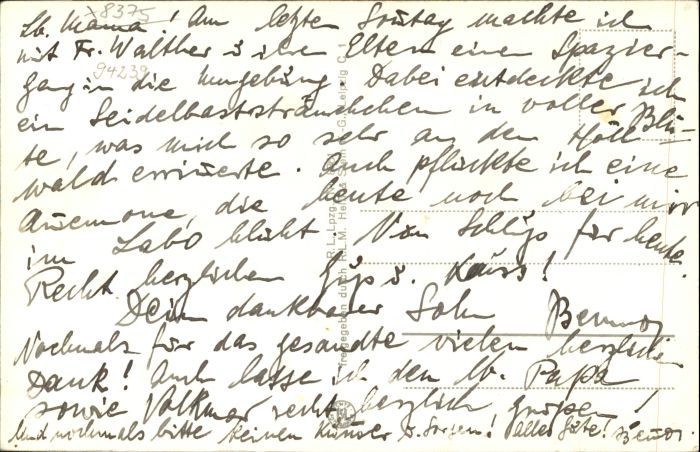 Lb. Mama! Am letzten Sonntag machte ich
mit Fr. Walther u ihren Eltern einen Spazier-
gang in die Umgebung. Dabei entdeckte ich
ein Seidelbaststräuchchen in voller Blü-
te, was mich so sehr an den Höll
wald erinnerte. Auch pflückte ich eine
Anemone, die heute noch bei mir
im Labo blüht. Nun Schluß für heute.
Recht herzlichen Gruß u. Kuss!
Dein dankbarer Sohn Benno
Nochmals für das gesandte vielen herzlichen
Dank! Auch lasse ich den lb. Papa
sowie Volkmar recht herzlich grüßen!
Und nochmals bitte keinen Kummer u. Sorgen! Alles Gute! Benno.
8375
94239
R.L. Lpzg.
freigegeben durch R.L.M.
Leipzig C 1